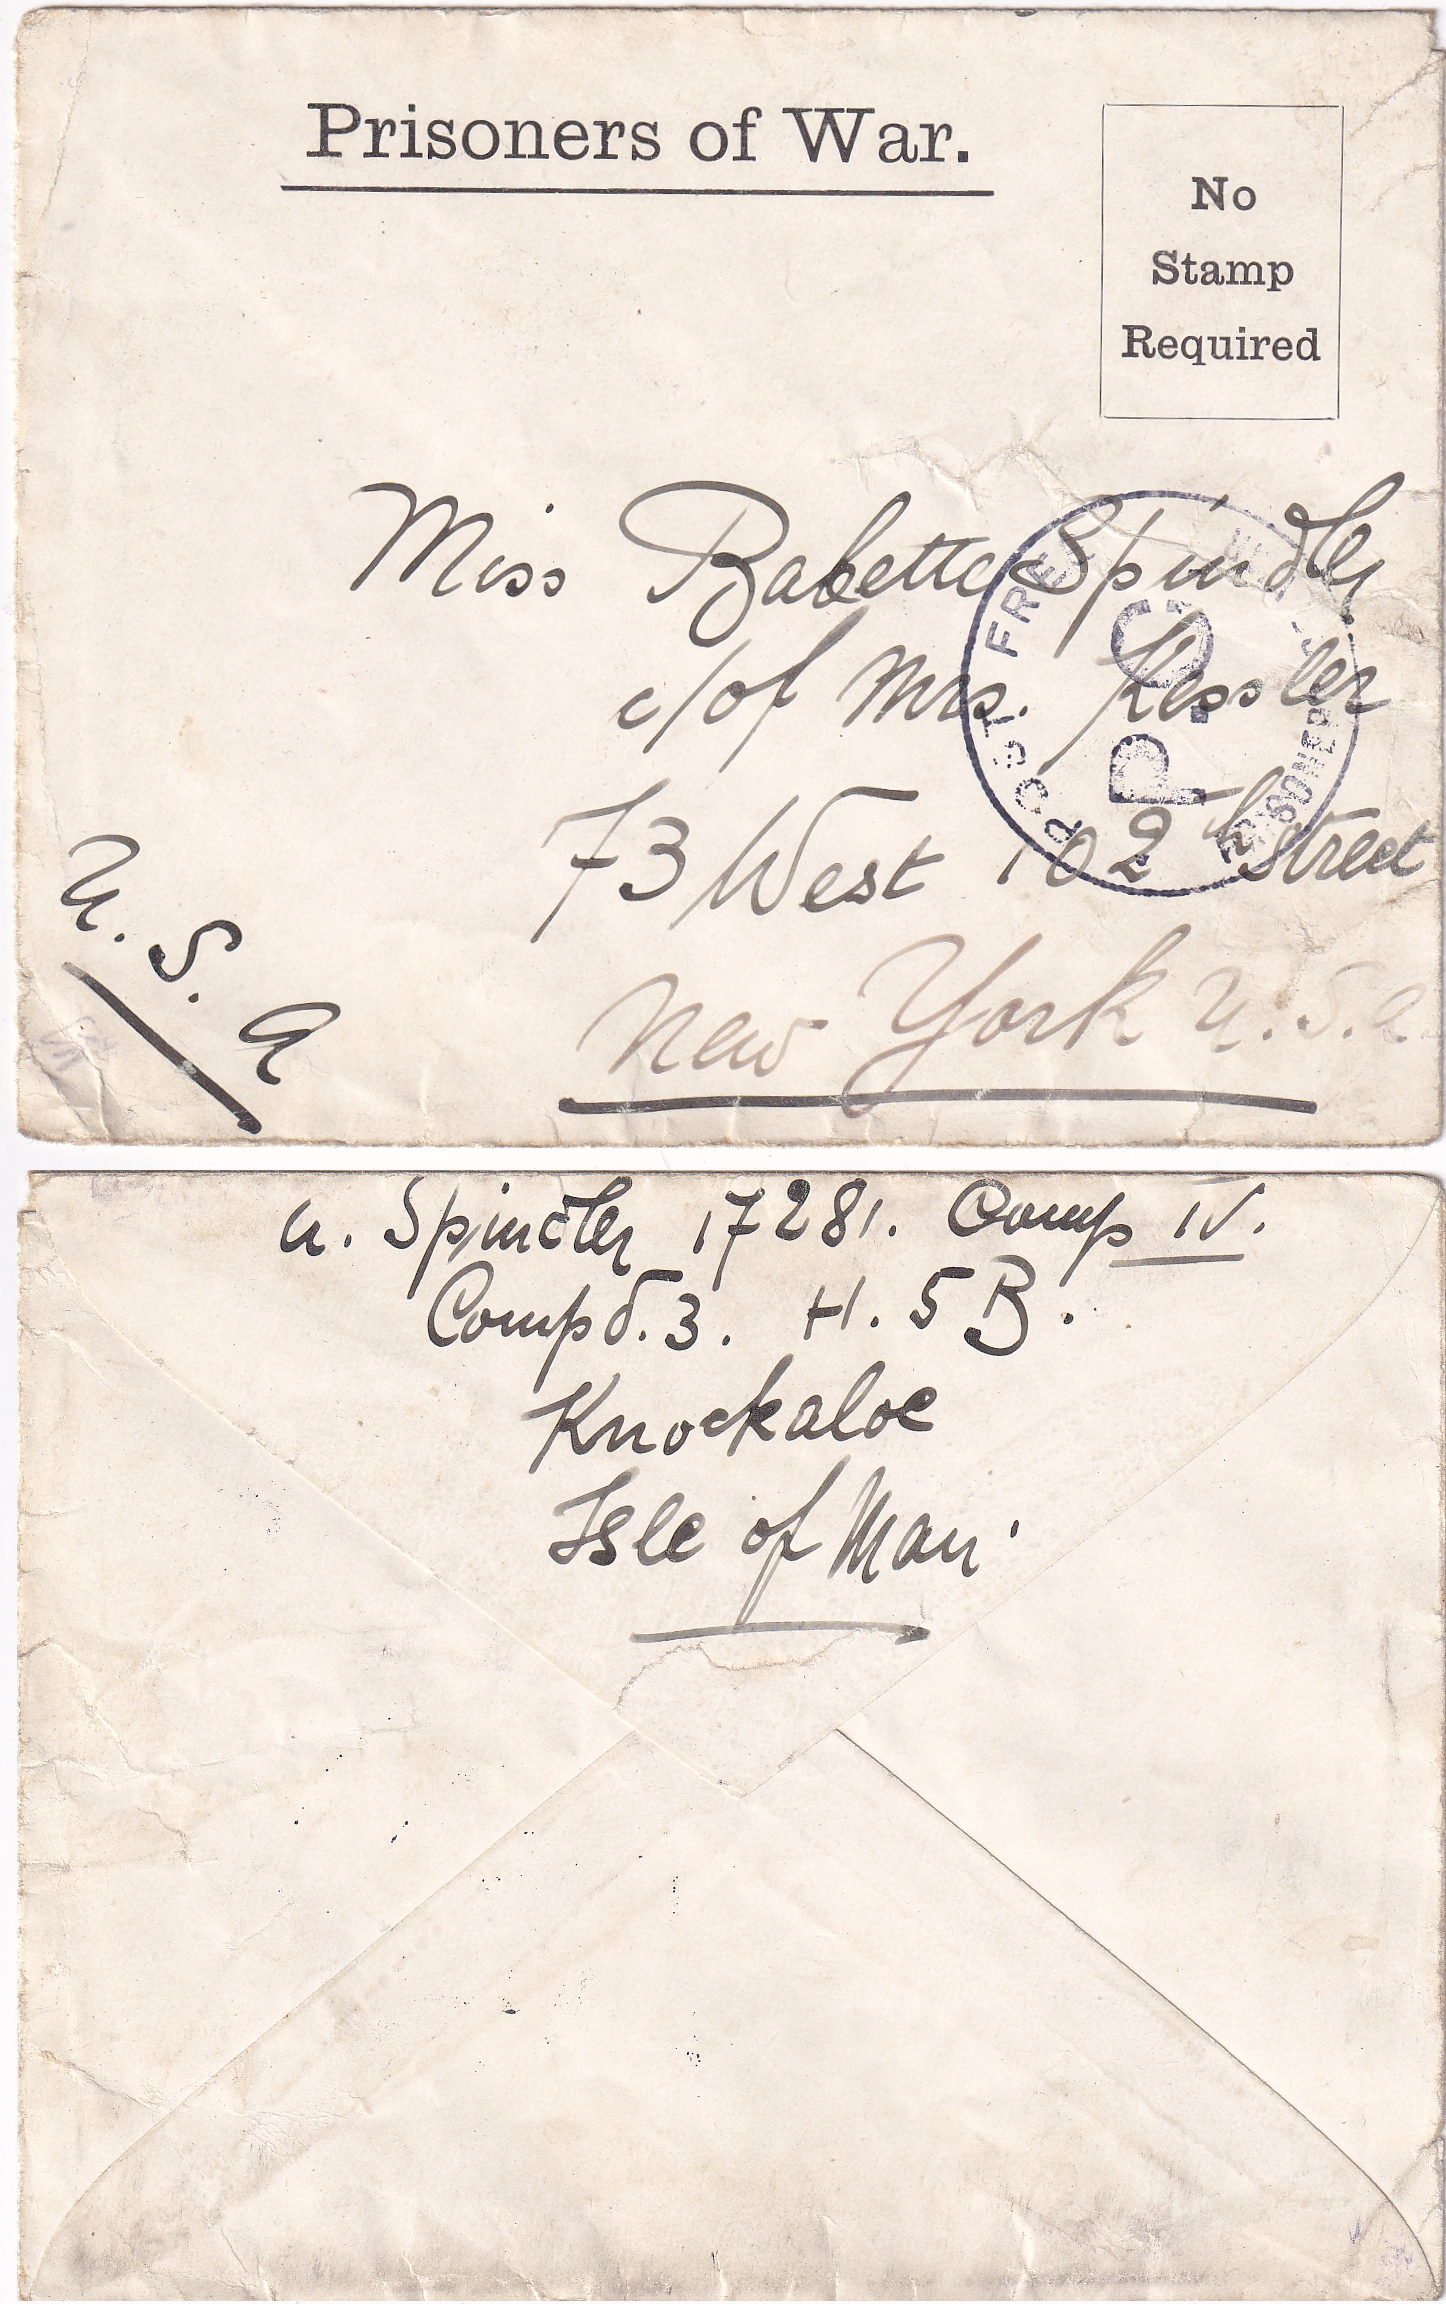 Prisoners of War.
No
Stamp
Required
Miss Babette Spindler
c/of Mrs. Kessler
73 West 102th Street
New York U.S.A.
U.S.A
POST FREE
P.C.
PRISONERS
A. Spindler 17281. Camp IV.
Compd. 3. H. 5 B.
Knockaloe
Isle of Man.